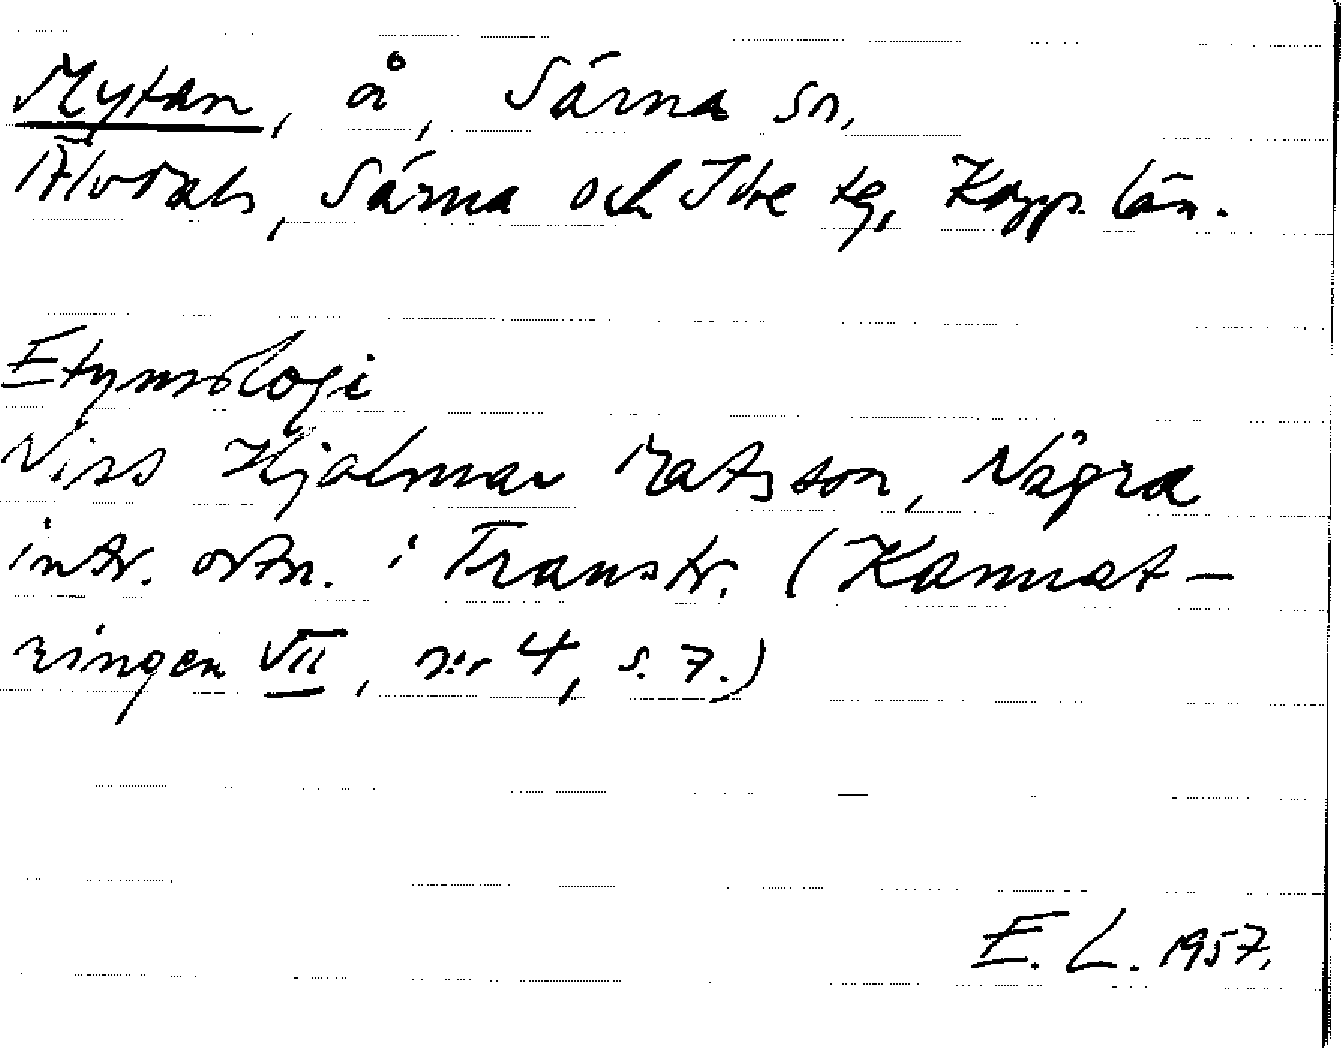 Mytan, å, Särna sn,
Älvdals, Särna och Idre tg, Kopp. län.
Etymologi
Hjalmar Matsson, Några
intr. ortn. i Transtr. (Kamrat-
ringen VII, nr 4, s. 7.)
E. L. 1957.